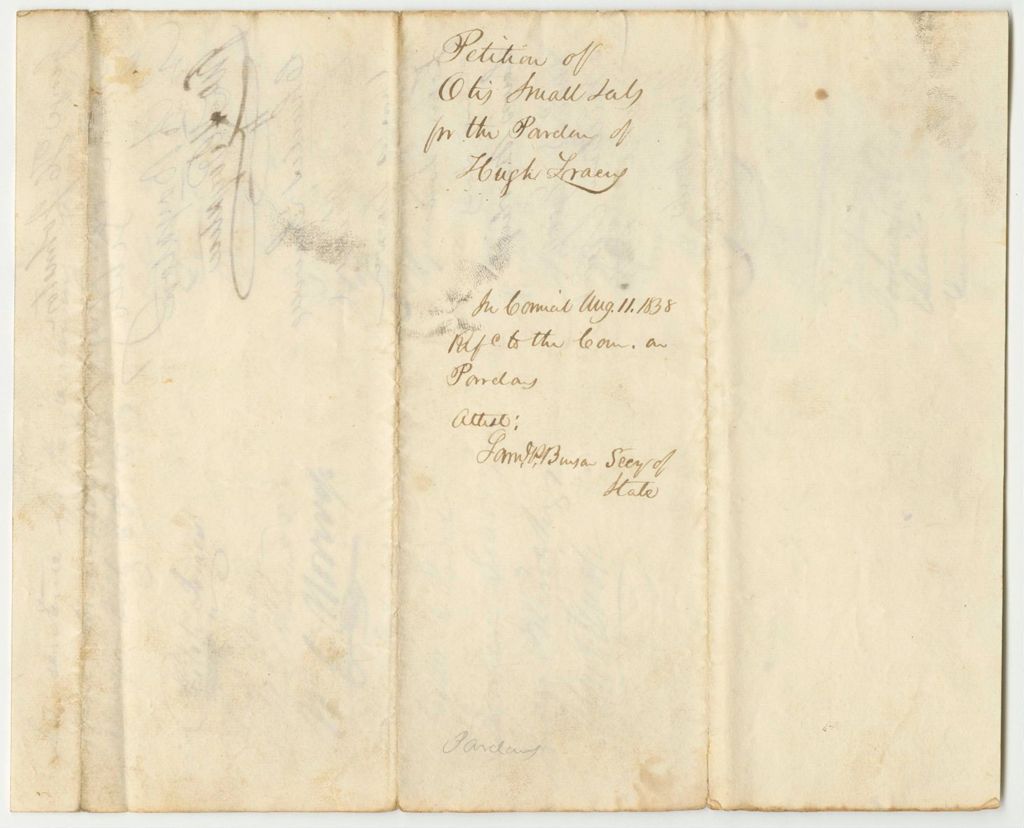 Petition of
Otis Small & als
for the Pardon of
Hugh
In Council Aug. 11. 1838
Refd to the Com. on
Pardons
Attest:
Saml P. Benson Secy of
State
Pardons